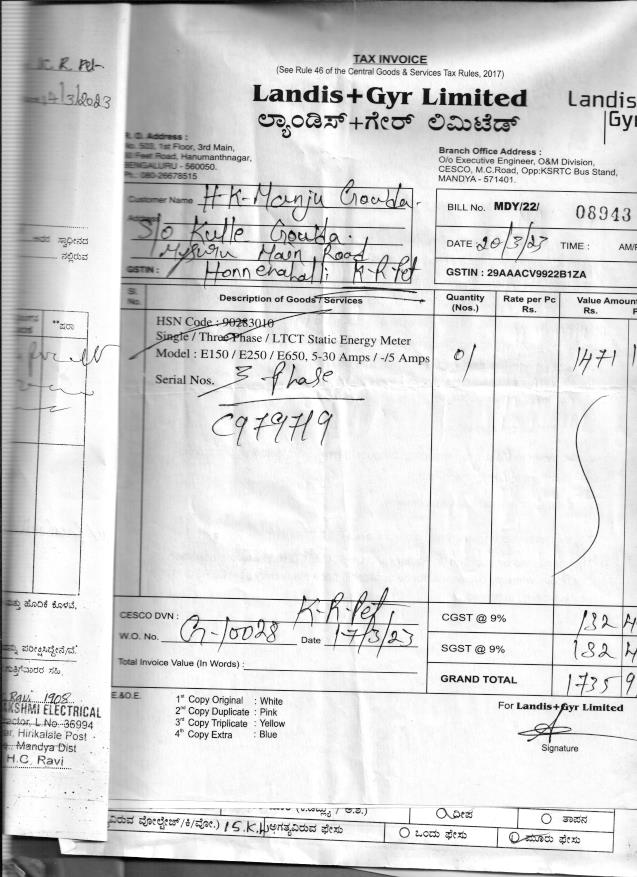 K. R. Pet
14/3/2023
TAX INVOICE
(See Rule 46 of the Central Goods & Services Tax Rules, 2017)
Landis+Gyr Limited
Landis
Gyr
ಲ್ಯಾಂಡಿಸ್+ಗೇರ್ ಲಿಮಿಟೆಡ್
R. O. Address :
No. 503, 1st Floor, 3rd Main,
Feet Road, Hanumanthnagar,
BENGALURU - 560050.
Ph.: 080-26678515
Branch Office Address :
O/o Executive Engineer, O&M Division,
CESCO, M.C.Road, Opp:KSRTC Bus Stand,
MANDYA - 571401.
Customer Name H-K-Manju Gowda.
Address S/o Kulle Gowda.
Main Road
GSTIN : Honnenahalli K-R-Pet
BILL No. MDY/22/ 08943
DATE 20/3/23 TIME : AM/
GSTIN : 29AAACV9922B1ZA
Sl. No. Description of Goods / Services Quantity (Nos.) Rate per Pc Rs. Value Amoun Rs.
HSN Code : 90283010
Single / Three Phase / LTCT Static Energy Meter
Model : E150 / E250 / E650, 5-30 Amps / -/5 Amps 01 1471
Serial Nos. 3 - Phase
C979719
CESCO DVN : K-R-Pet
W.O. No. Cr-10028 Date 17/3/23
Total Invoice Value (In Words) :
CGST @ 9% 132 4
SGST @ 9% 132 4
GRAND TOTAL 1735 9
E.&O.E.
1st Copy Original : White
2nd Copy Duplicate : Pink
3rd Copy Triplicate : Yellow
4th Copy Extra : Blue
For Landis+Gyr Limited
Signature
ಸ್ವಾಧೀನದ
ನಲ್ಲಿರುವ
**ಷರಾ
ಮತ್ತು ಹೊದಿಕೆ ಕೊಳವೆ,
ಪರೀಕ್ಷಿಸಿದ್ದೇನೆ/ವೆ.
ಗುತ್ತಿಗೆದಾರರ ಸಹಿ
Ravi 1908
AKSHMI ELECTRICAL
ractor, L.No. 36994
ar, Hirikalale Post
Mandya Dist
H.C. Ravi
ದೀಪ ತಾಪನ
ವಿರುವ ವೋಲ್ಟೇಜ್/ಕಿ/ವೋ.) 15.K. ಅಗತ್ಯವಿರುವ ಫೇಸು ಒಂದು ಫೇಸು ಮೂರು ಫೇಸು